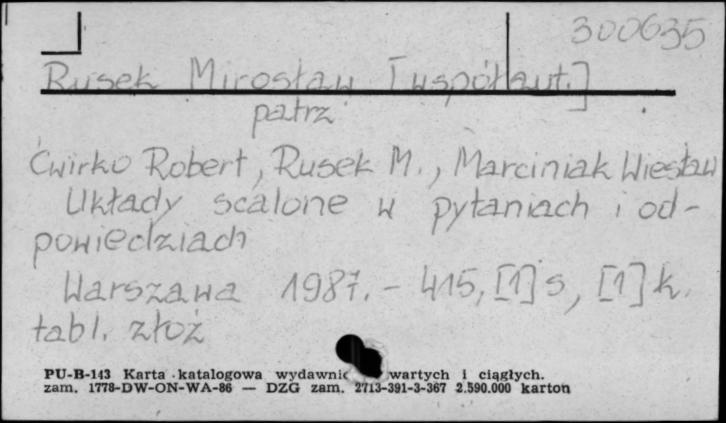 300635
Rusek Mirosław [współaut.]
patrz
Ćwirko Robert, Rusek M., Marciniak Wiesław
Układy scalone w pytaniach i od-
powiedziach
Warszawa 1987. - 415, [1] s, [1] k.
tabl. złoż
PU-B-143 Karta katalogowa wydawnic wartych i ciągłych.
zam. 1778-DW-ON-WA-86 — DZG zam. 2713-391-3-367 2.590.000 karton